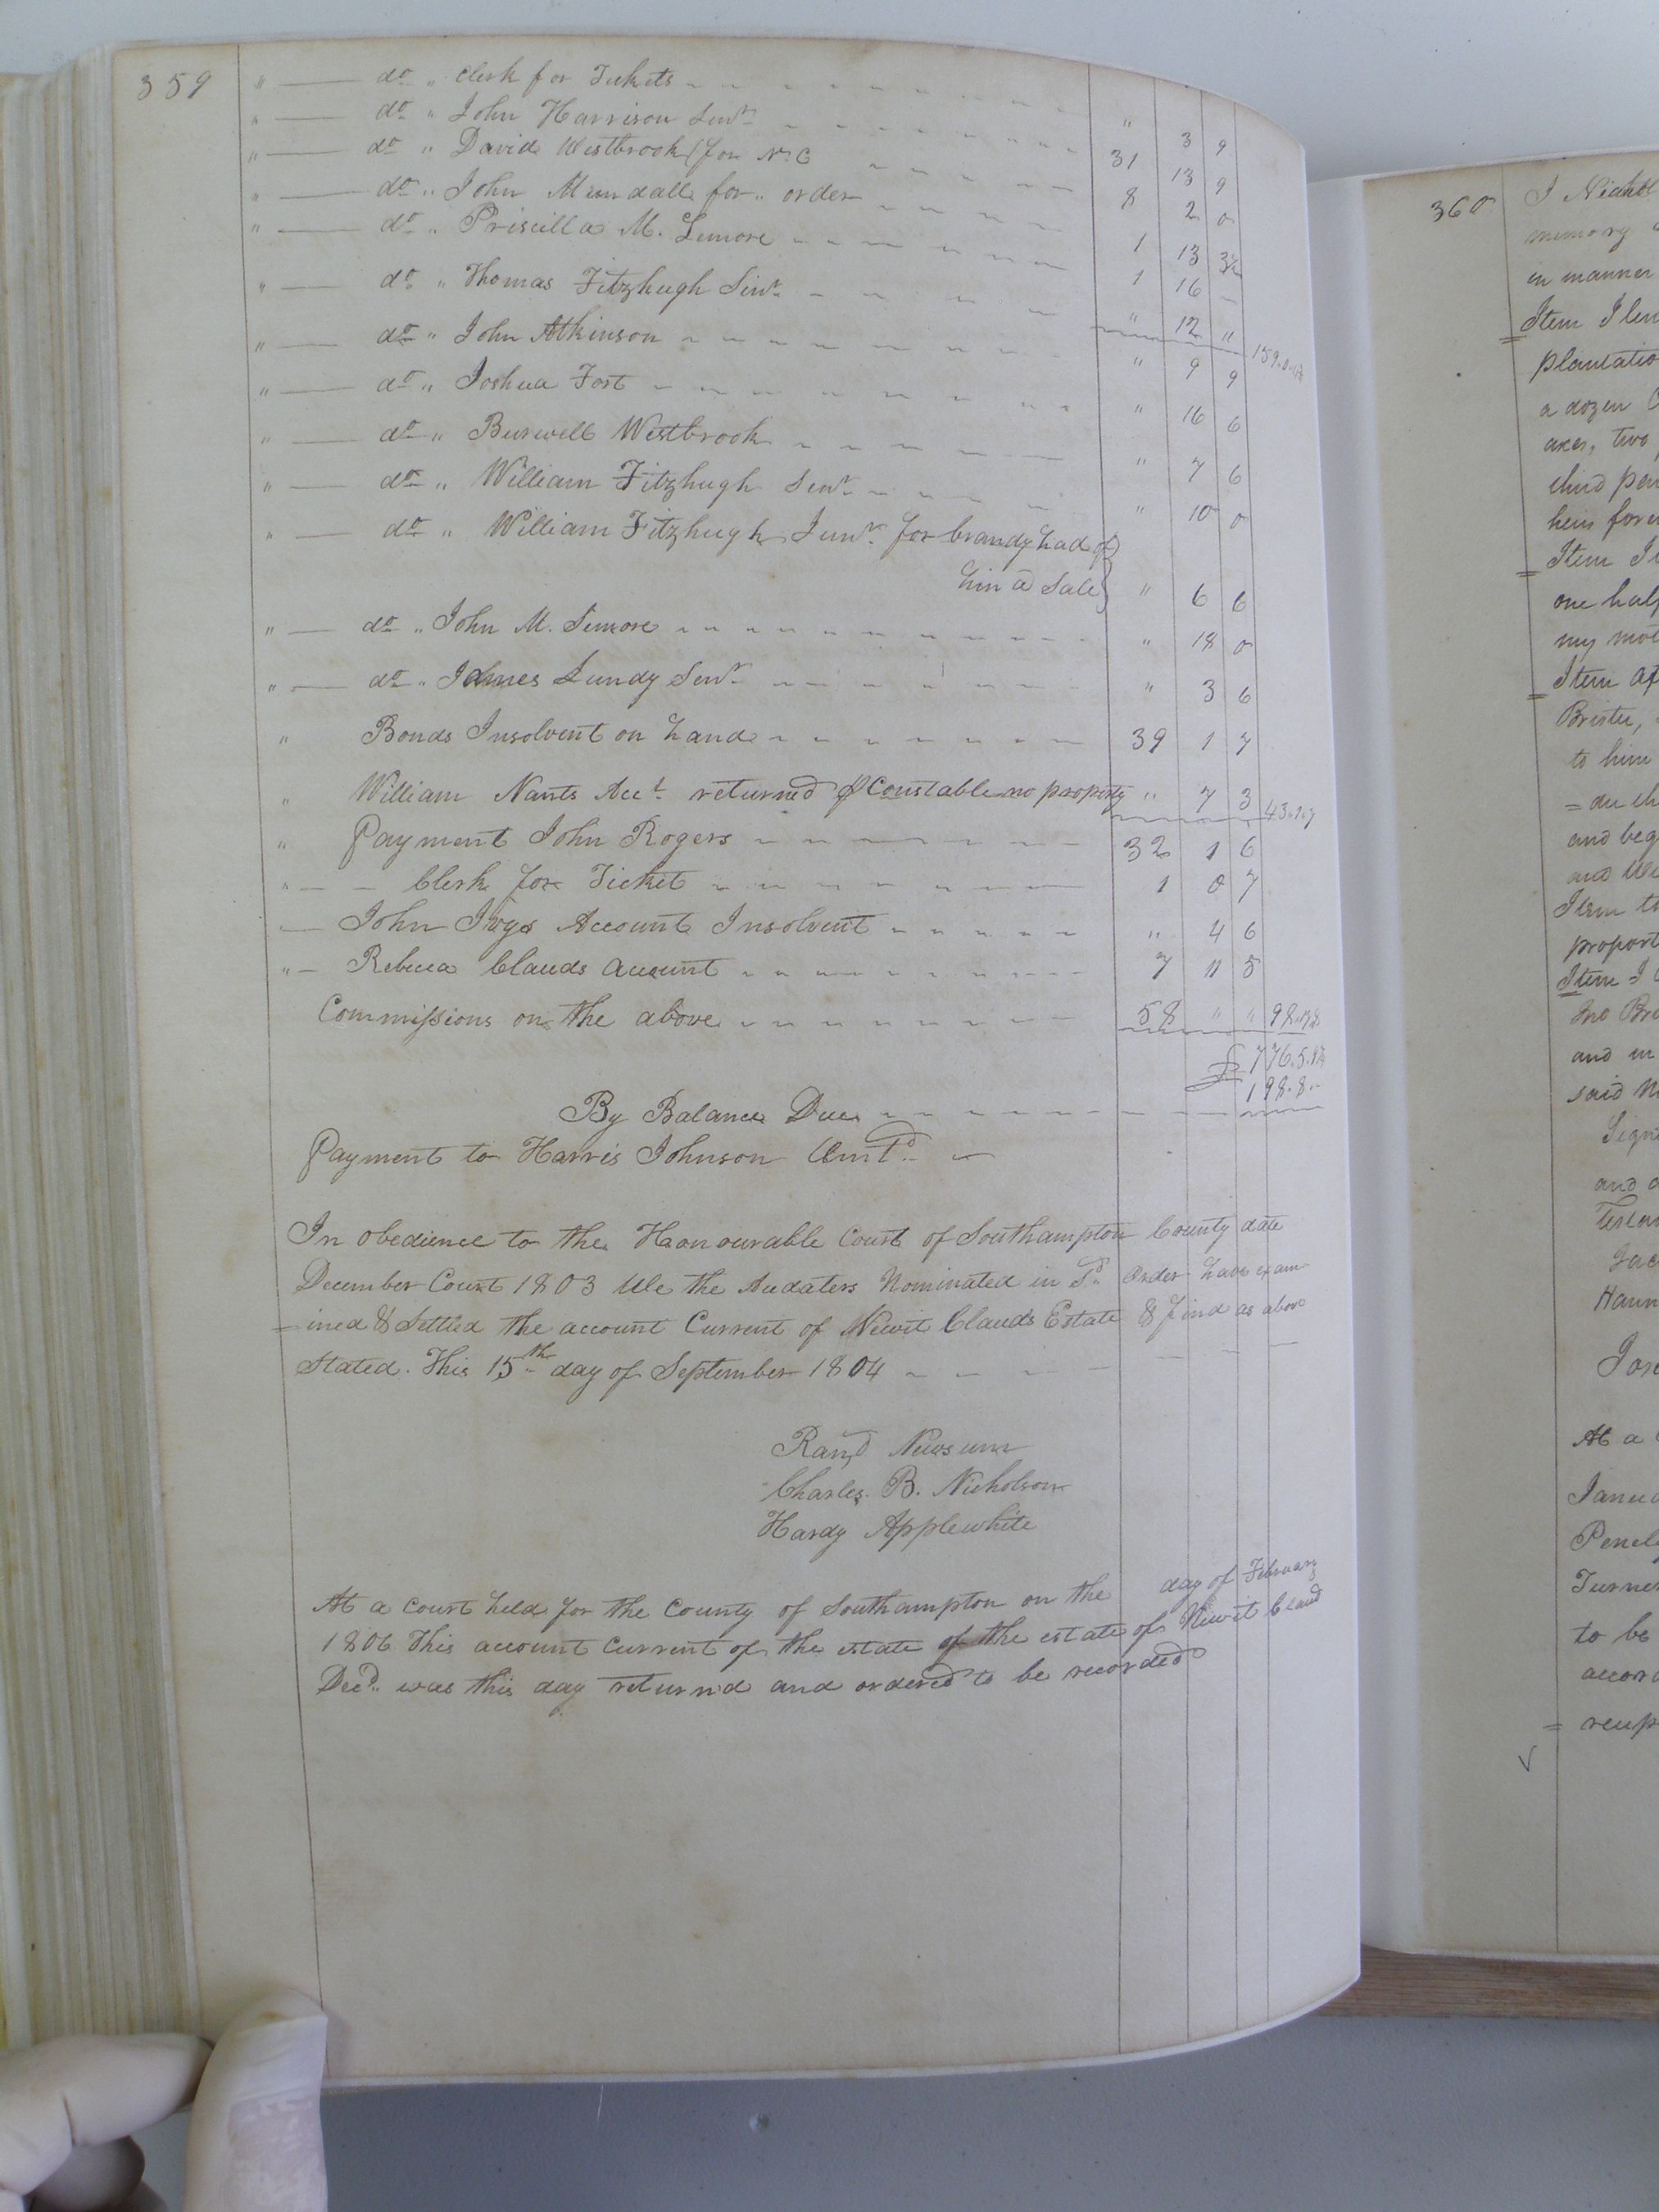 359
" — do " Clerk for Tickets " 3 9
" — do " John Harrison Senr 31 13 9
" — do " David Westbrook for N. C 8 2 0
" — do " John Mundall for " order 1 13 3½
" — do " Priscilla M. Lemore 1 16 —
" — do " Thomas Fitzhugh Senr " 12 "
" — do " John Atkinson " 9 9
" — do " Joshua Fort " 16 6
" — do " Burwell Westbrook " 7 6
" — do " William Fitzhugh Senr " 10 0
" — do " William Fitzhugh Junr for brandy had of
him @ Sale } " 6 6
" — do " John M. Lemore " 18 0
" — do " James Lundy Senr " 3 6
" Bonds Insolvent on hand 39 1 7
" William Nants Acct returned Constable no property " 7 3 43.9.7
" Payment John Rogers 32 1 6
" — — Clerk for Ticket 1 0 7
— John Ivys Account Insolvent " 4 6
" — Rebecca Clauds account 7 11 5
Commissions on the above 58 " " 98.
£ 776.5.
By Balance Due 198.8.-
Payment to Harris Johnson
In obedience to the Honourable Court of Southampton County date
December Court 1803 We the Audaters Nominated in Sd Order have exam
= ined & Settled the account Current of Newit Clauds Estate & find as above
Stated. This 15th day of September 1804
Rand Newsum
Charles B. Nicholson
Hardy Applewhite
At a Court held for the County of Southampton on the day of February
1806 This account Current of the estate of the estate of Newit Claud
Decd. was this day return'd and ordered to be recorded
360
I Nichol
memory
in manner
Item I len
plantatio
a dozen
axes, two
Item I
one half
my mot
Item
to him
and beg
Item
proport
Item I
and in
said
Sign
and
Hann
At a
Janua
Turner
to be
accord